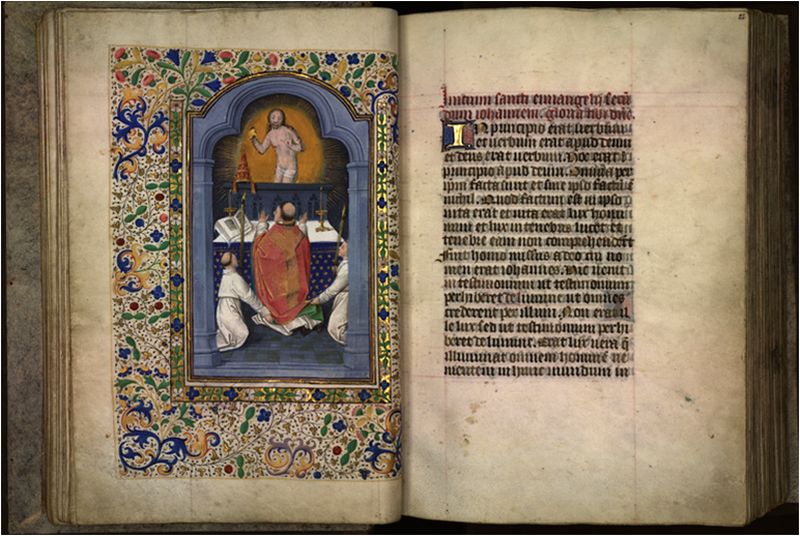 Inicium sancti euuangelii secun
dum iohannem. Gloria tibi dne.
In principio erat uerbum
et uerbum erat apud deum
et deus erat uerbum. Hoc erat i
principio apud deum. Omnia per
ipm facta sunt et sine ipso factu e
nichil. Quod factum est in ipso
uita erat et uita erat lux homi
num et lux in tenebris lucet et
tenebre eam non comprehendert
Fuit homo missus a deo cui no
men erat iohannes. Hic uenit
in testimonium ut testimonium
perhiberet de lumine ut omnes
crederent per illum. Non erat il
le lux sed ut testimonium perhi
beret de lumine. Erat lux uera q
illuminat omnem hominē ue
nientem in hunc mundum in